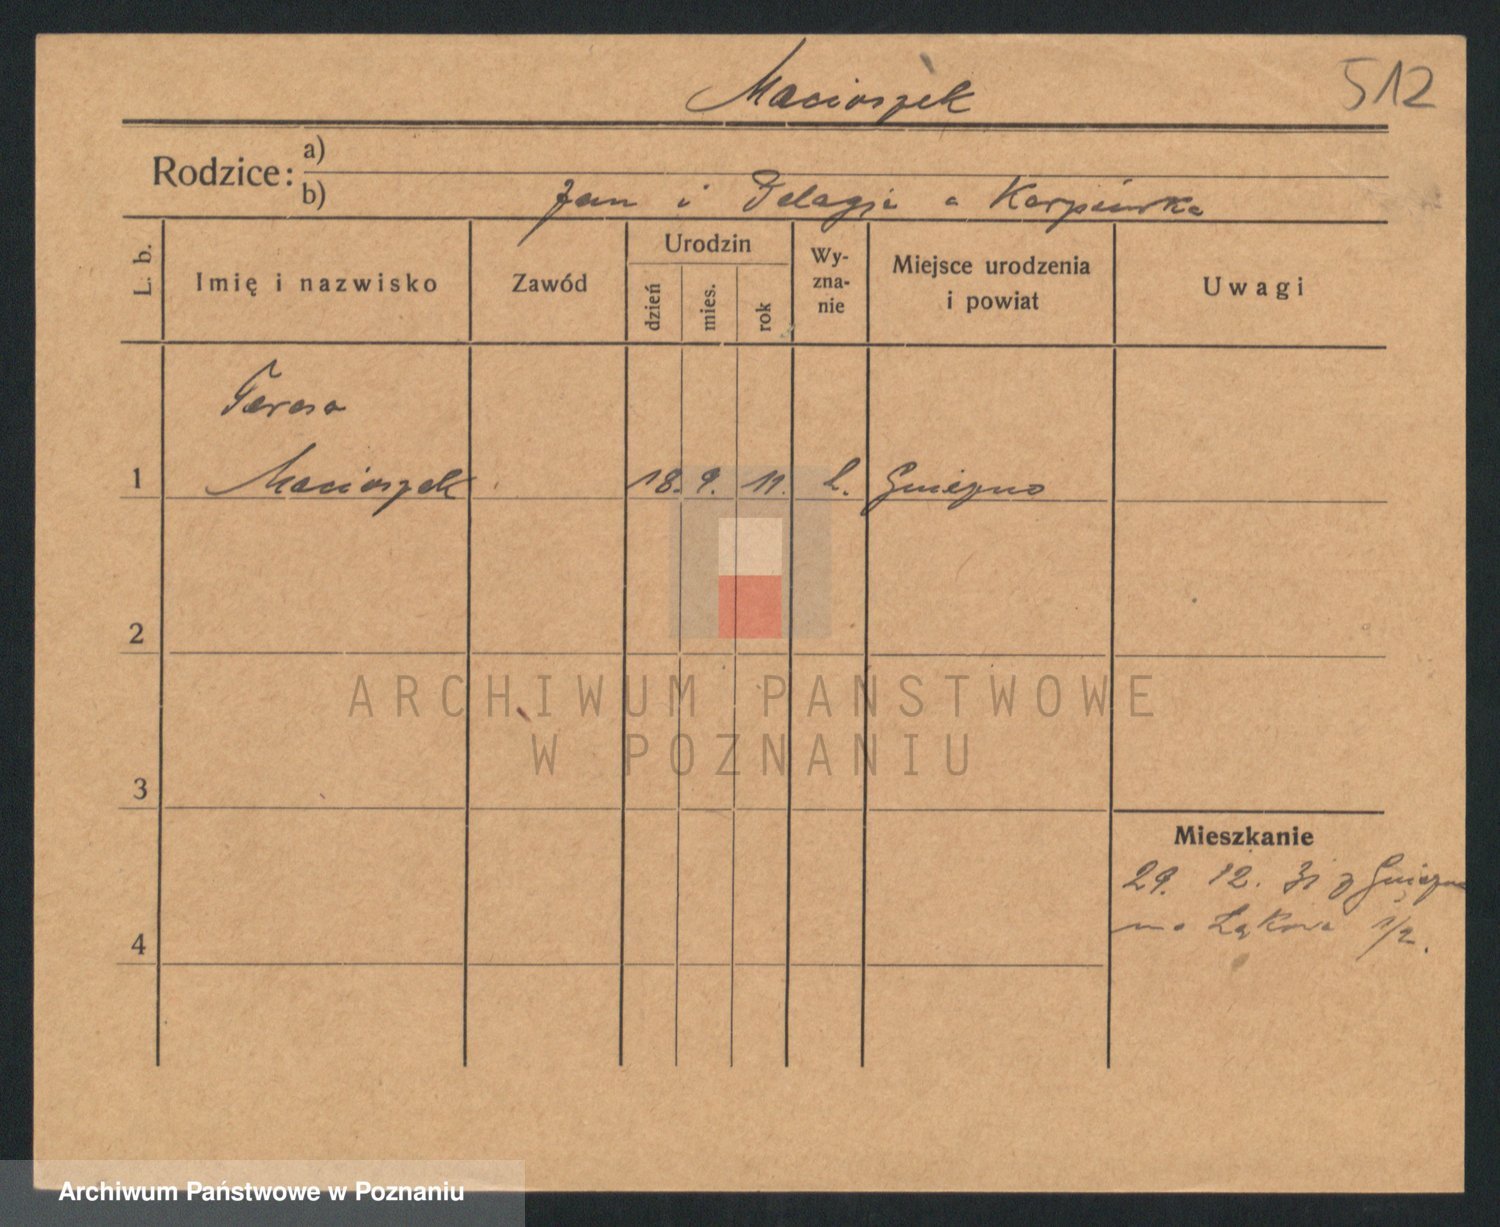 Macioszek
512
Rodzice:
a)
b) Jan i Pelagja a Karpińska
L. b.
Imię i nazwisko
Zawód
Urodzin
dzień
mies.
rok
Wy-
zna-
nie
Miejsce urodzenia
i powiat
Uwagi
Teresa
1 Macioszek 18. 9. 11. k. Gniezno
2
ARCHIWUM PAŃSTWOWE
W POZNANIU
3
Mieszkanie
29. 12. 31 z Gniezna
na Łąkowa 1/2.
4
Archiwum Państwowe w Poznaniu